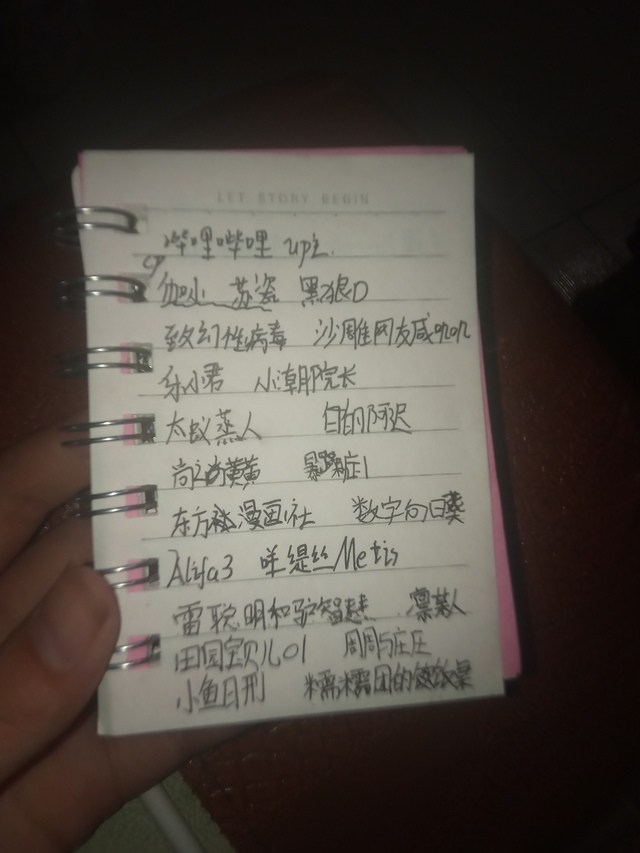 LET STORY BEGIN
哔哩哔哩 up主
cp 苏瓷 黑狼D
致幻性病毒 沙雕网友咸
乐小君 小潮院长
太蒸人 白的阿迟
尚 黄 暴躁
东方 漫画社 数字向日葵
Alifa3 缇丝Metis
雷聪明和驴 凛某人
田园宝贝儿01 周周与庄庄
小鱼日刑 糯糯团的